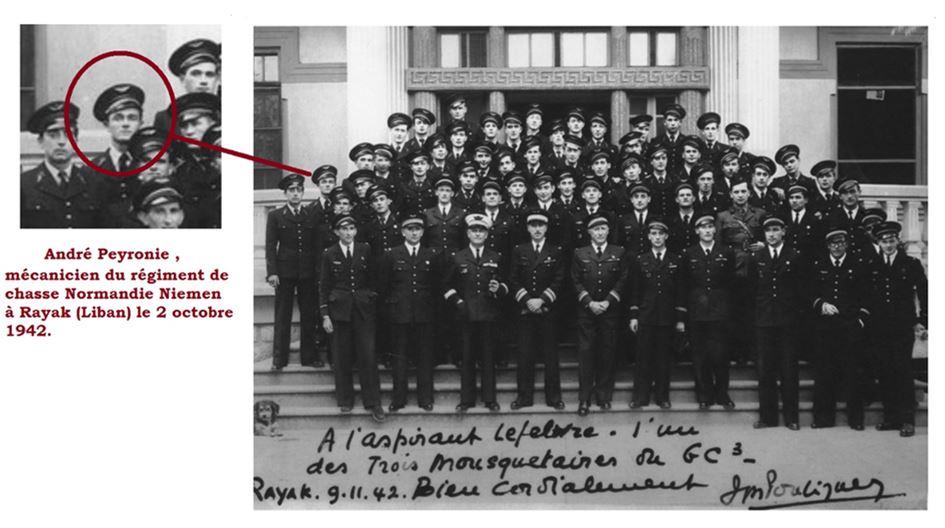 André Peyronie ,
mécanicien du régiment de
chasse Normandie Niemen
à Rayak (Liban) le 2 octobre
1942.
A l'aspirant Lefebvre. l'un
des Trois Mousquetaires du GC3_
Rayak. 9.11.42. Bien Cordialement